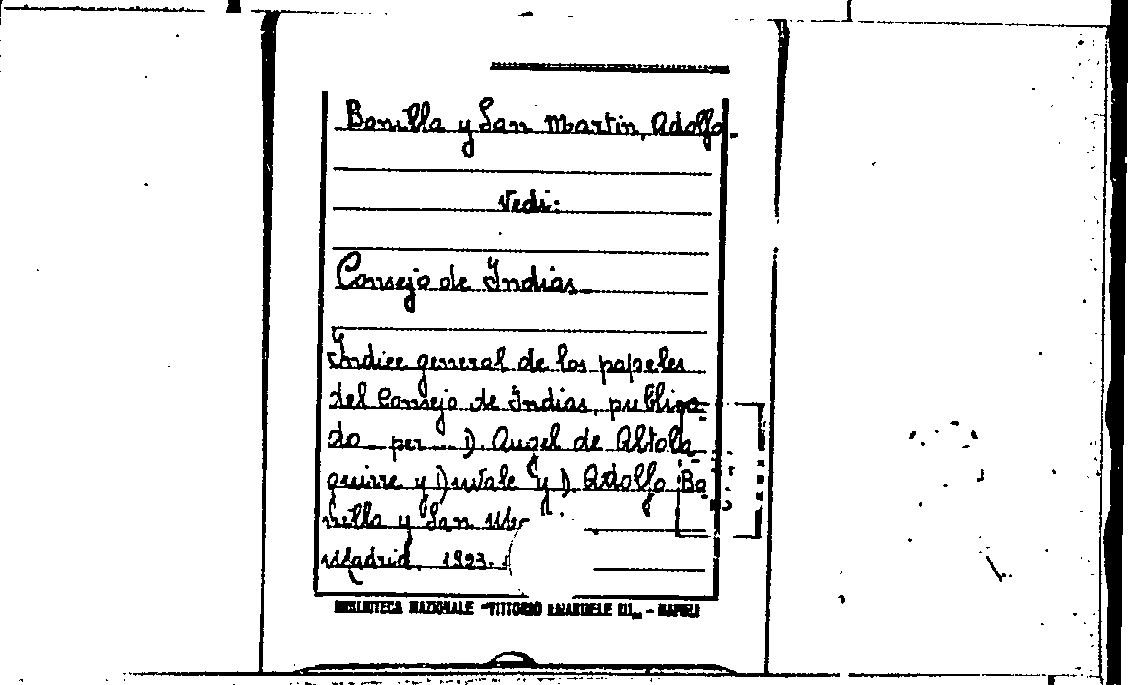 Bonilla y San Martin, Adolfo.
Vedi:
Consejo de Indias
Indice general de los papeles
del Consejo de Indias, publica-
do per D. Angel de Altola
guirre y Duvale y D. Adolfo Bo
nilla y San Mar
Madrid, 1923.
BIBLIOTECA NAZIONALE "VITTORIO EMANUELE III" - NAPOLI